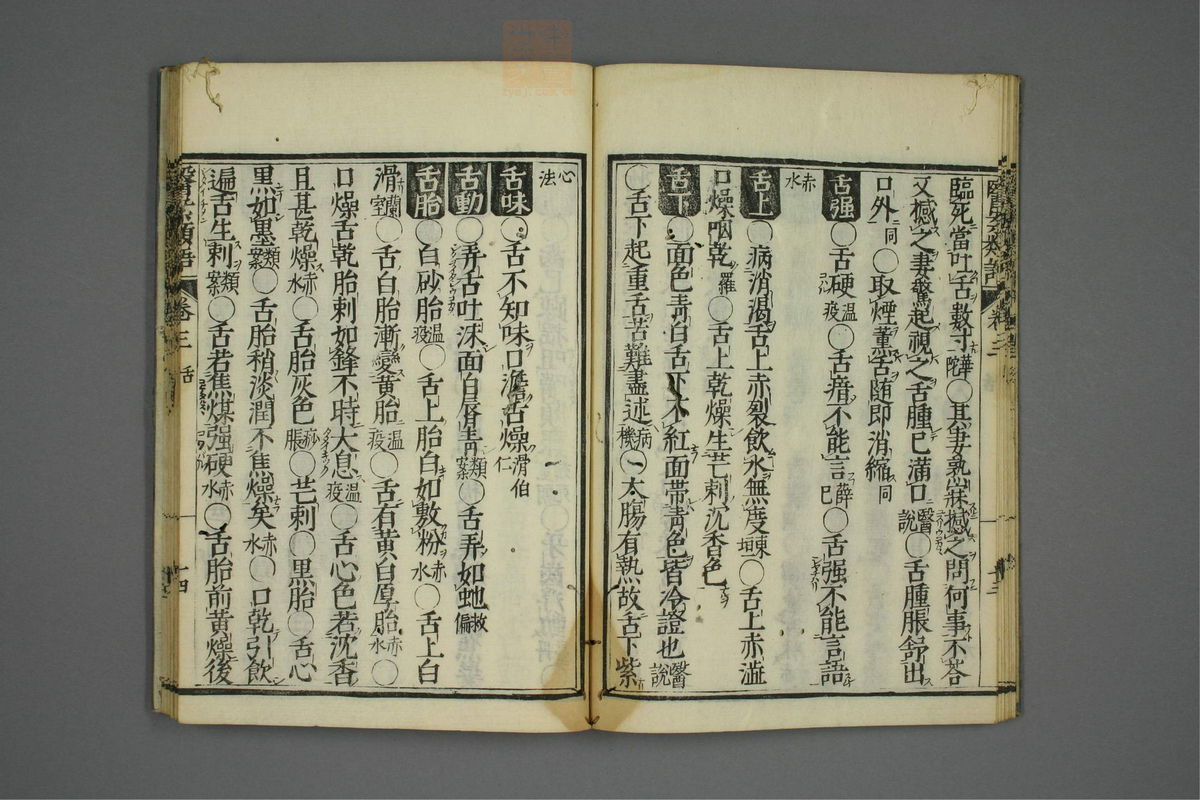 臨死當吐舌數寸華陀○其妻熟寐撼之問何事不荅
又撼之妻驚起視之舌腫已滿口醫說○舌腫脹舒出
口外同○取煙薰舌随即消縮同
舌强○舌硬温疫○舌瘖不能言薛己○舌强不能言語
赤水
舌上○病消渴舌上赤裂飲水無度東垣○舌上赤澁
口燥咽乾羅○舌上乾燥生芒刺沉香色
舌下○面色青白舌下不紅面帶青色皆冷證也醫說
○舌下起重舌苦難盡述病機○一太腸有熱故舌下紫
心法
舌味○舌不知味口澹舌燥滑伯仁
舌動○弄舌吐沫面白唇青類案○舌弄如虵救偏
舌胎○白砂胎温疫○舌上胎白如敷粉赤水○舌上白
滑蘭室○舌白胎漸變黃胎温疫○舌有黃白厚胎赤水○
口燥舌乾胎刺如鋒不時大息温疫○舌心色若沈香
且甚乾燥赤水○舌胎灰色痧脹○芒刺○黒胎○舌心
黒如墨類案○舌胎稍淡潤不焦燥矣赤水○口乾引飲
遍舌生刺類案○舌若焦煤强硬赤水○舌胎前黃燥後
醫學類語 卷三 舌 十四